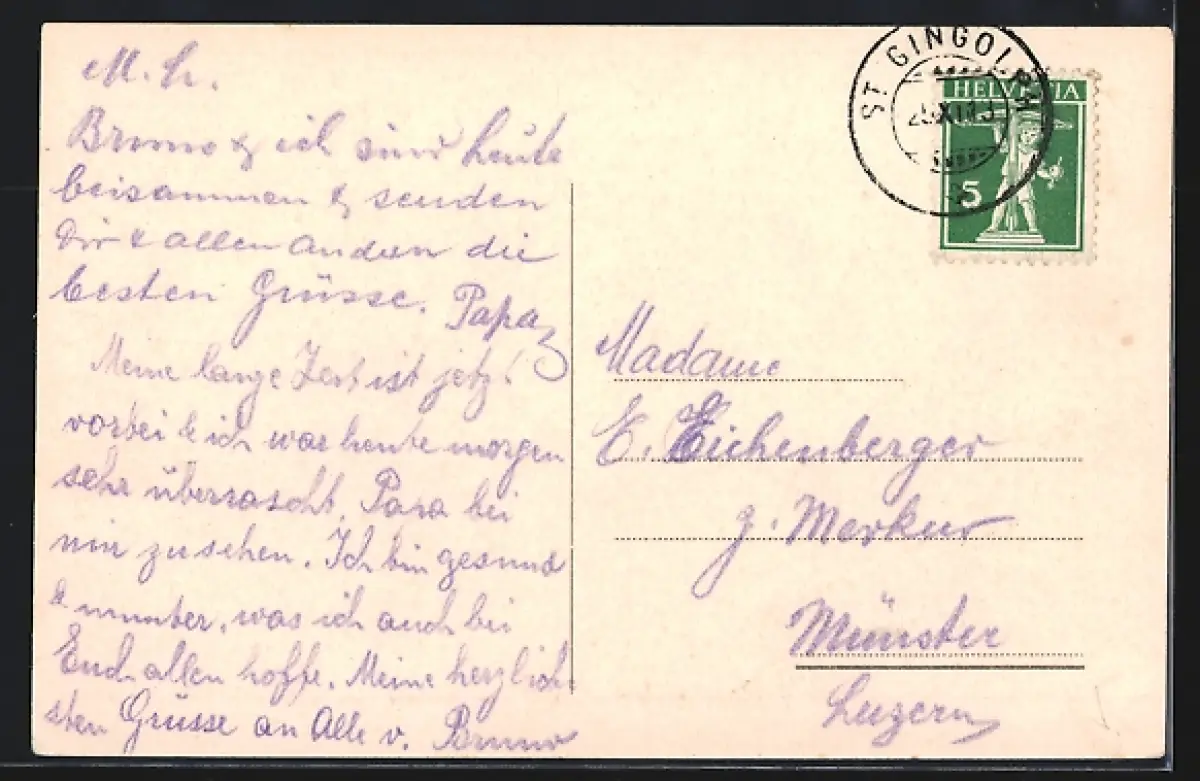 M. L.
Bruno & ich sind heute
beisammen & senden
Dir & allen andern die
besten Grüsse. Papa
Meine lange Zeit ist jetzt
vorbei & ich war heute morgen
sehr überrascht, Papa bei
mir zu sehen. Ich bin gesund
& munter, was ich auch bei
Euch allen hoffe. Meine herzlich-
sten Grüsse an Alle v. Bruno
ST. GINGOLPH
HELVETIA
5
Madame
E. Eichenberger
z. Merkur
Münster
Luzern